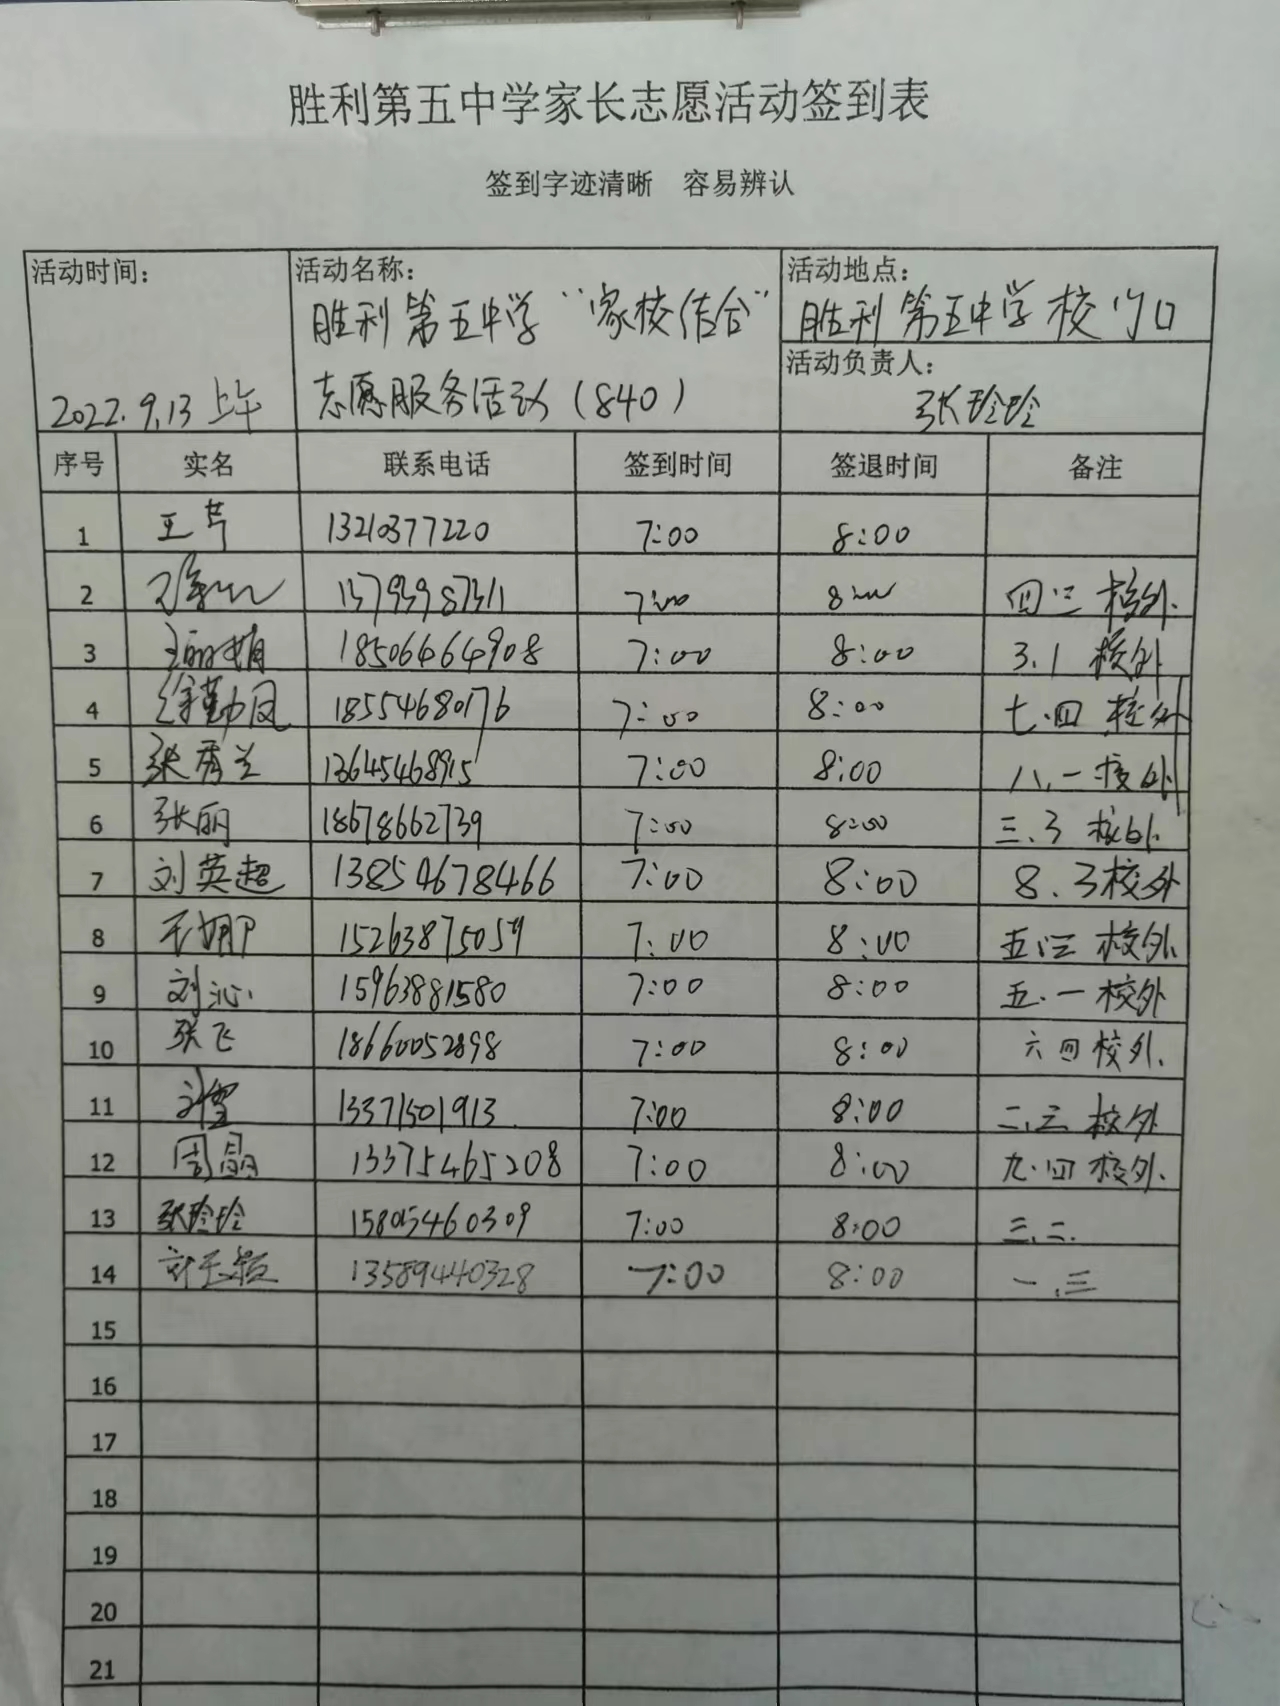 胜利第五中学家长志愿活动签到表
签到字迹清晰 容易辨认
活动时间: 2022.9.13 上午
活动名称: 胜利第五中学“家校结合”
志愿服务活动(840)
活动地点: 胜利第五中学校门口
活动负责人: 张玲玲
序号 实名 联系电话 签到时间 签退时间 备注
1 王芹 13210377220 7:00 8:00
2 13793987311 7:00 8:00 四.三 校外
3 王丽娟 18506464908 7:00 8:00 3.1 校外
4 徐勤凤 18554680176 7:00 8:00 七.四 校外
5 张秀兰 13645468915 7:00 8:00 八.一校外
6 张丽 18678662739 7:00 8:00 三.3 校外
7 刘英超 13854678466 7:00 8:00 8.3校外
8 王娜 15263875059 7:00 8:00 五.三 校外
9 刘沁 15963881580 7:00 8:00 五.一校外
10 张飞 18660052898 7:00 8:00 六四校外
11 刘雪 13371501913 7:00 8:00 二.三 校外
12 周晶 13375465208 7:00 8:00 九.四校外
13 张玲玲 15805460309 7:00 8:00 三.二
14 13589440328 7:00 8:00 一.三
15
16
17
18
19
20
21